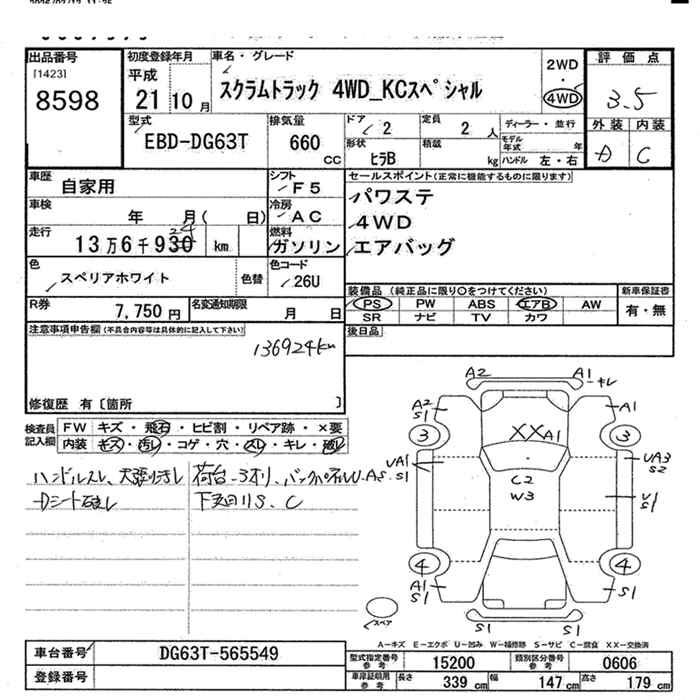 出品番号
[1423]
8598
初度登録年月
平成
21 10 月
車名・グレード
スクラムトラック 4WD_KCスペシャル
2WD
・
4WD
評価点
3.5
外装 内装
A C
型式
EBD-DG63T
排気量
660
cc
ドア
2
定員
2 人
ディーラー・並行
モデル年式 年
形状
ヒラB
積載
kg
ハンドル 左・右
車歴
自家用
シフト
F5
セールスポイント(正常に機能するものに限ります)
パワステ
4WD
エアバッグ
車検
年 月( 日)
冷房
AC
走行
13万6千930 km
24
燃料
ガソリン
色
スペリアホワイト
色替
色コード
26U
装備品(純正品に限り○をつけてください)
新車保証書
PS PW ABS エアB AW
有・無
SR ナビ TV カワ
R券
7,750円
名変通知期限
月 日
後日品
注意事項申告欄(不具合内容等は具体的に記入して下さい)
136924km
修復歴 有〔箇所 〕
検査員
記入欄
FW キズ・飛石・ヒビ割・リペア跡・×要
内装 キズ・汚レ・コゲ・穴・スレ・キレ・破レ
ハンドルスレ、天張り汚レ
Dシート破レ
荷台
下廻りS、C
A2 A1
キレ
A2
S1
A1
3 3
XXA1
UA1
S1
UA3
S2
C2
W3
U1
S1
4 4
A1
S1
S1
S1 S1
スペア
A-キズ E-エクボ U-凹み W-補修跡 S-サビ C-腐食 XX-交換済
車台番号
DG63T-565549
型式指定番号
参考
15200
類別区分番号
参考
0606
登録番号
車庫証明用
参考
長さ
339 cm
幅
147 cm
高さ
179 cm